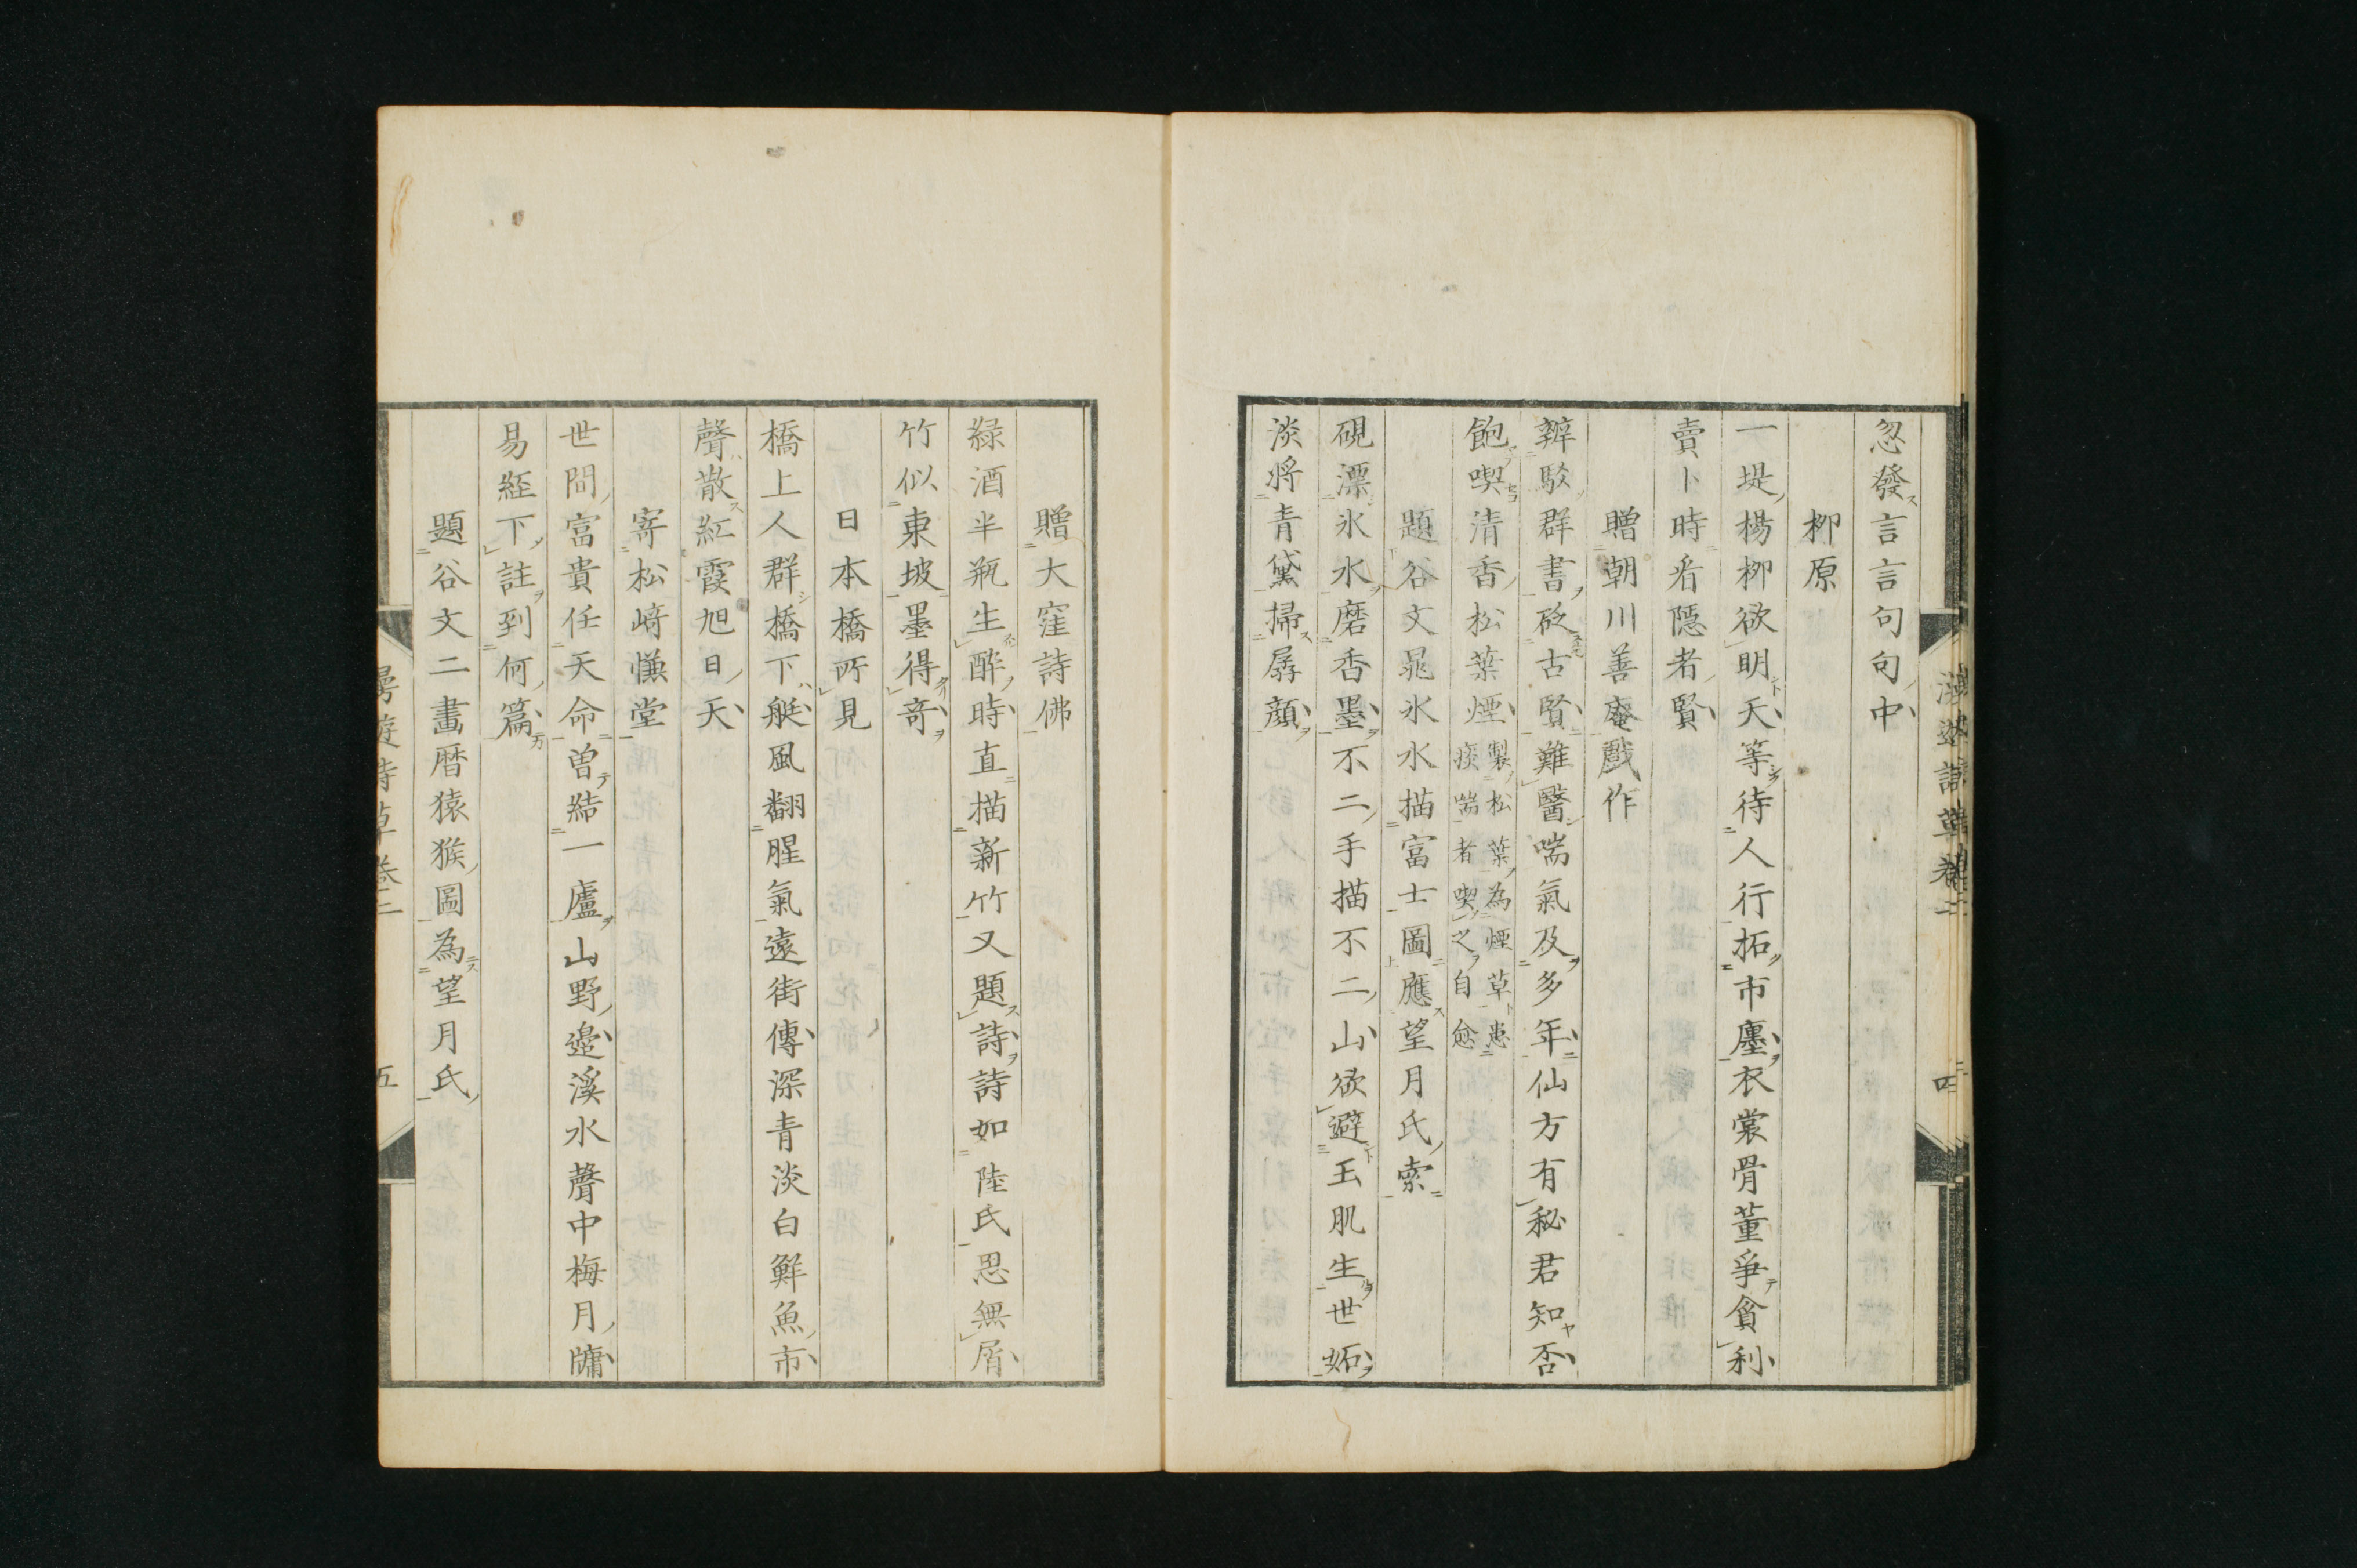 忽發言言句句中
柳原
一堤楊柳欲明天等待人行拓市廛衣裳骨董爭貪利
賣卜時看隱者賢
贈朝川善庵戲作
辨駁群書砭古賢難醫喘氣及多年仙方有秘君知否
飽喫清香松葉煙製松葉為煙草患
痰喘者喫之自愈
題谷文晁氷水描富士圖應望月氏索
硯漂氷水磨香墨不二手描不二山欲避玉肌生世妬
淡將青黛掃孱顏
四
贈大窪詩佛
緑酒半瓶生醉時直描新竹又題詩詩如陸氏思無屑
竹似東坡墨得奇
日本橋所見
橋上人群橋下艇風翻腥氣遠街傳深青淡白鮮魚市
聲散紅霞旭日天
寄松﨑慊堂
世間富貴任天命曽結一廬山野邉溪水聲中梅月牗
易経下註到何篇
題谷文二畫暦猿猴圖為望月氏
漫遊詩草巻二
五